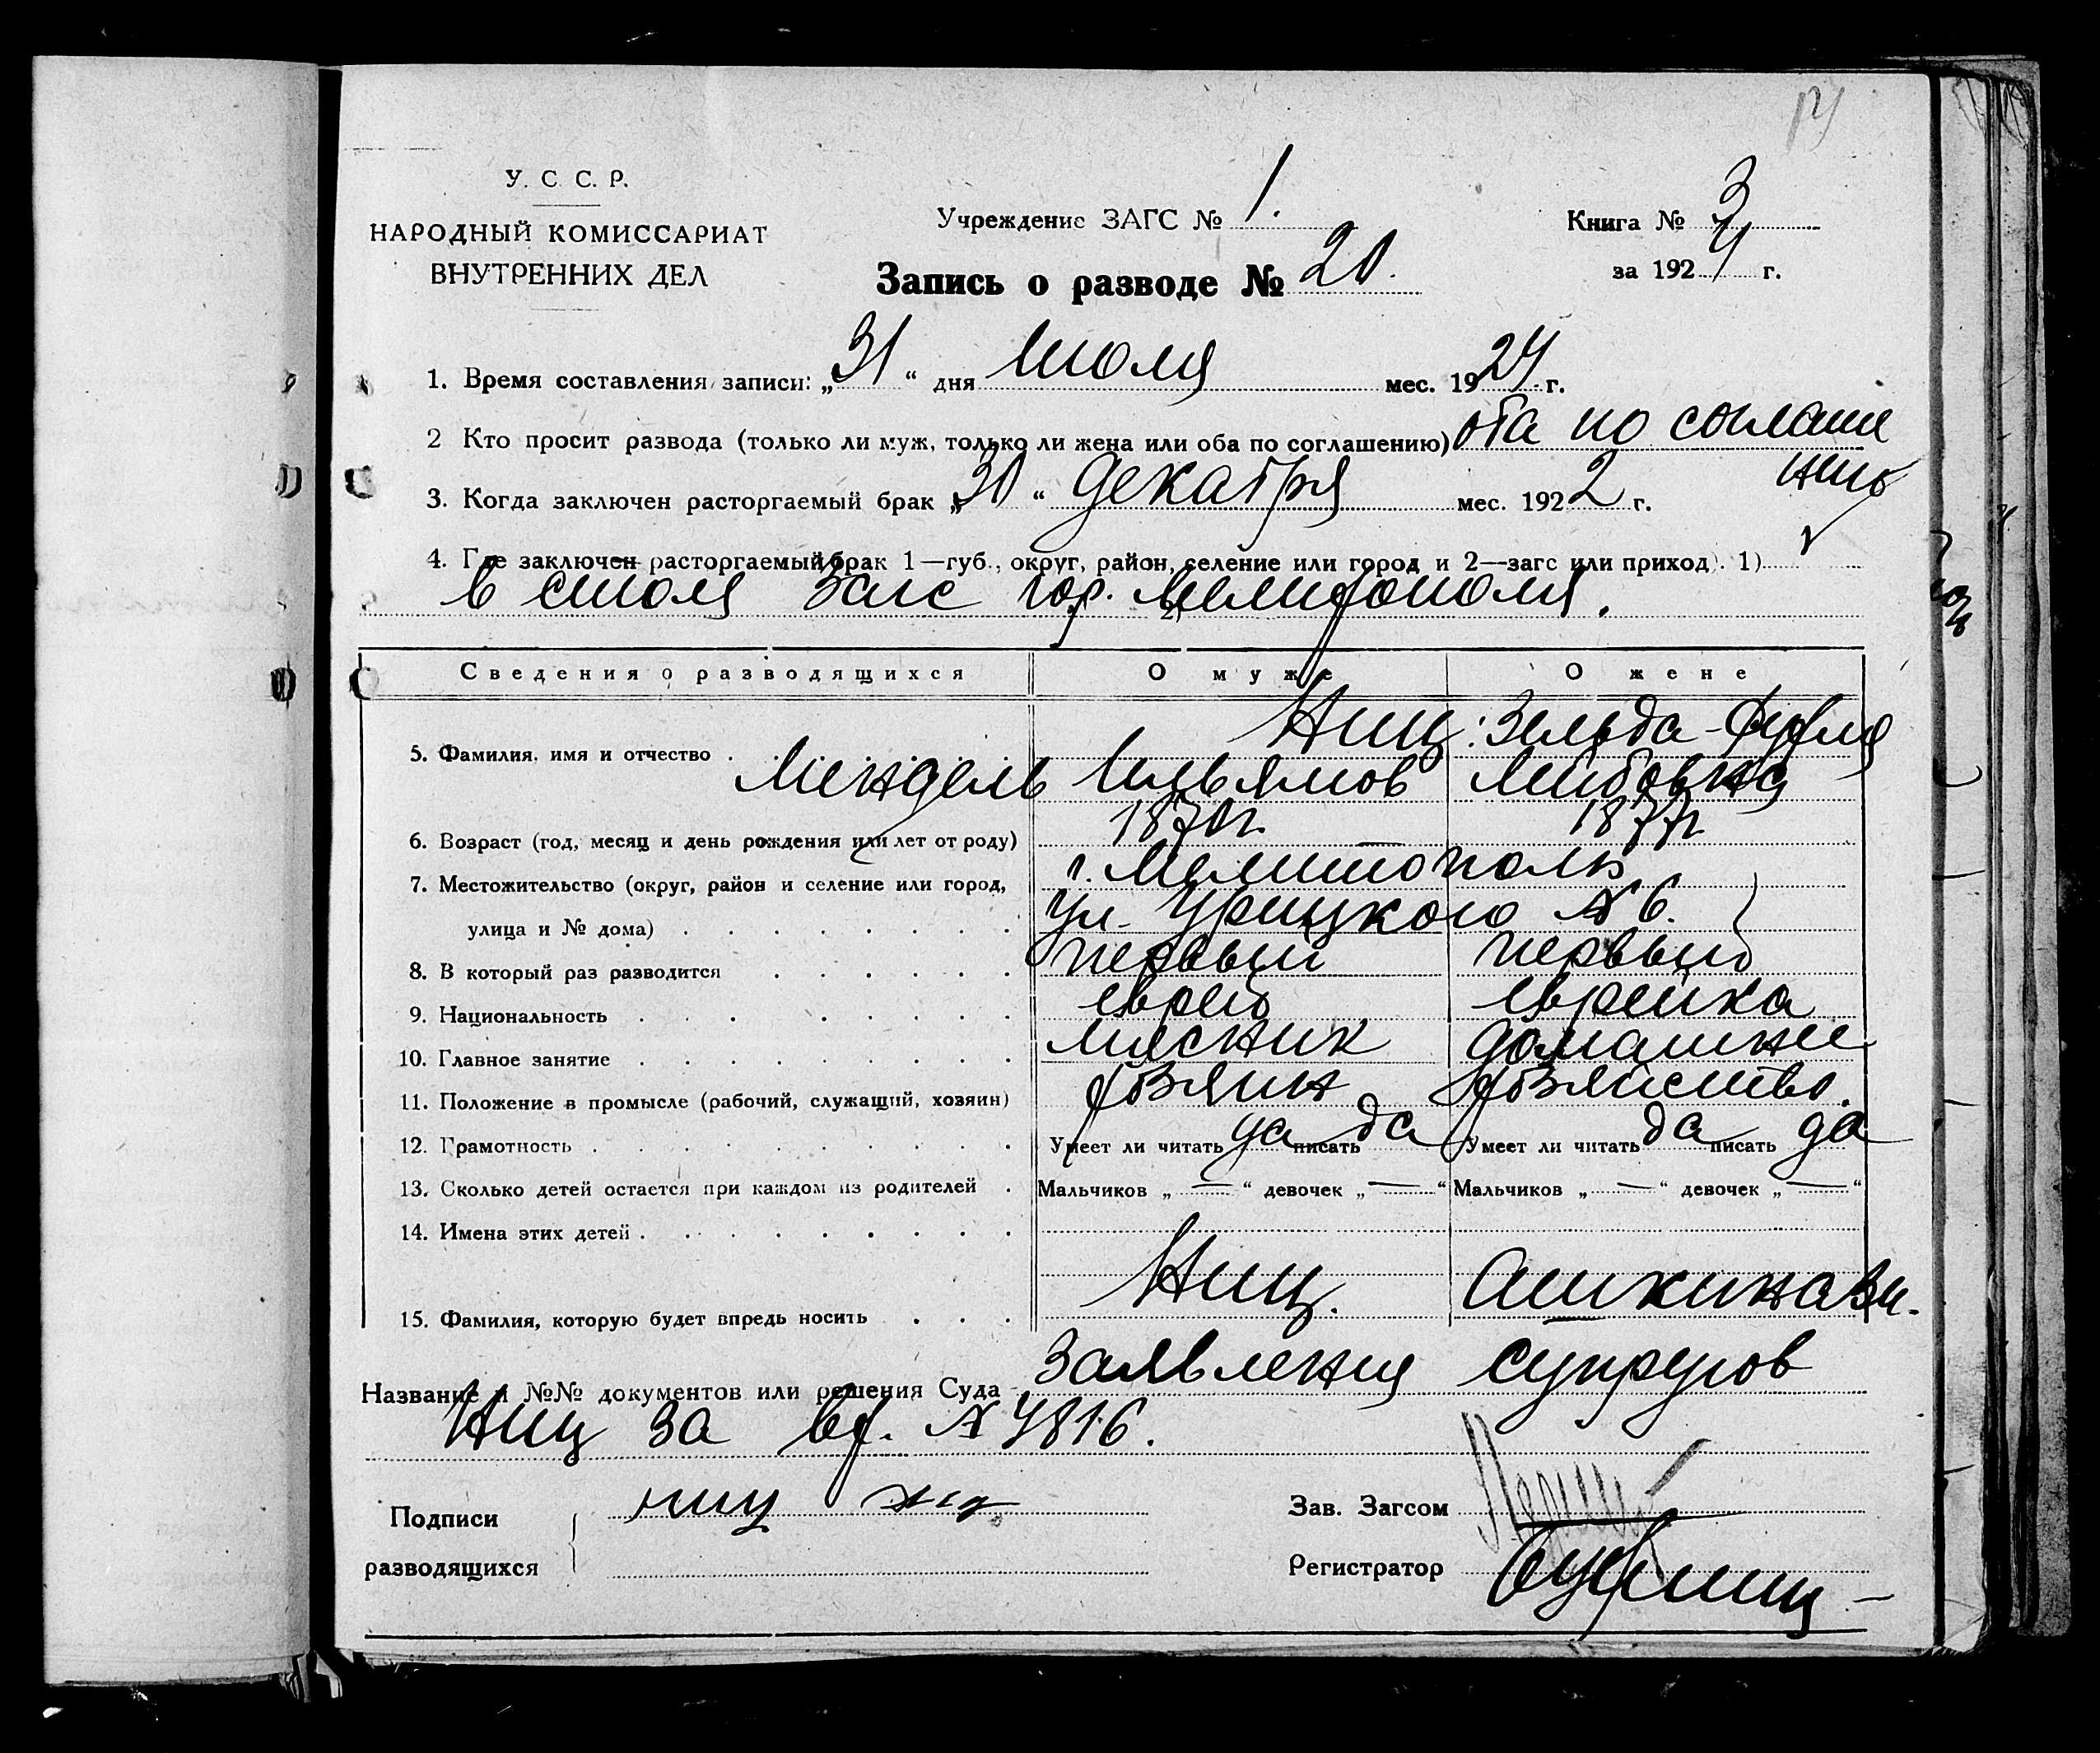 У. С. С. Р.
НАРОДНЫЙ КОМИССАРИАТ
ВНУТРЕННИХ ДЕЛ
Учреждение ЗАГС № 1.
Книга № 3
за 1924 г.
Запись о разводе № 20.
1. Время составления записи: „31“ дня Июля мес. 1924 г.
2 Кто просит развода (только ли муж, только ли жена или оба по соглашению) оба по соглаше
нию
3. Когда заключен расторгаемый брак „30“ декабря мес. 1922 г.
4. Где заключен расторгаемый брак 1—губ., округ, район, селение или город и 2—загс или приход). 1)
в столе Загс гор. Мелитополя. 2)
Сведения о разводящихся О муже О жене
Ниц: Зельда-Фрейля
5. Фамилия, имя и отчество Мендель Ильямов Лейбовна
6. Возраст (год, месяц и день рождения или лет от роду) 1870г. 1877г.
7. Местожительство (округ, район и селение или город, г. Мелитополь
улица и № дома) ул. Урицкого № 6.
8. В который раз разводится первый первый
9. Национальность еврей еврейка
10. Главное занятие мясник домашнее
11. Положение в промысле (рабочий, служащий, хозяин) хозяин хозяйство.
12. Грамотность Умеет ли читать да писать да Умеет ли читать да писать да
13. Сколько детей остается при каждом из родителей Мальчиков „—“ девочек „—“ Мальчиков „—“ девочек „—“
14. Имена этих детей
15. Фамилия, которую будет впредь носить Ниц. Ашкинази.
Название и №№ документов или решения Суда Заявления супругов
Ниц за вх. № 4816.
Подписи ниц
разводящихся
Зав. Загсом
Регистратор